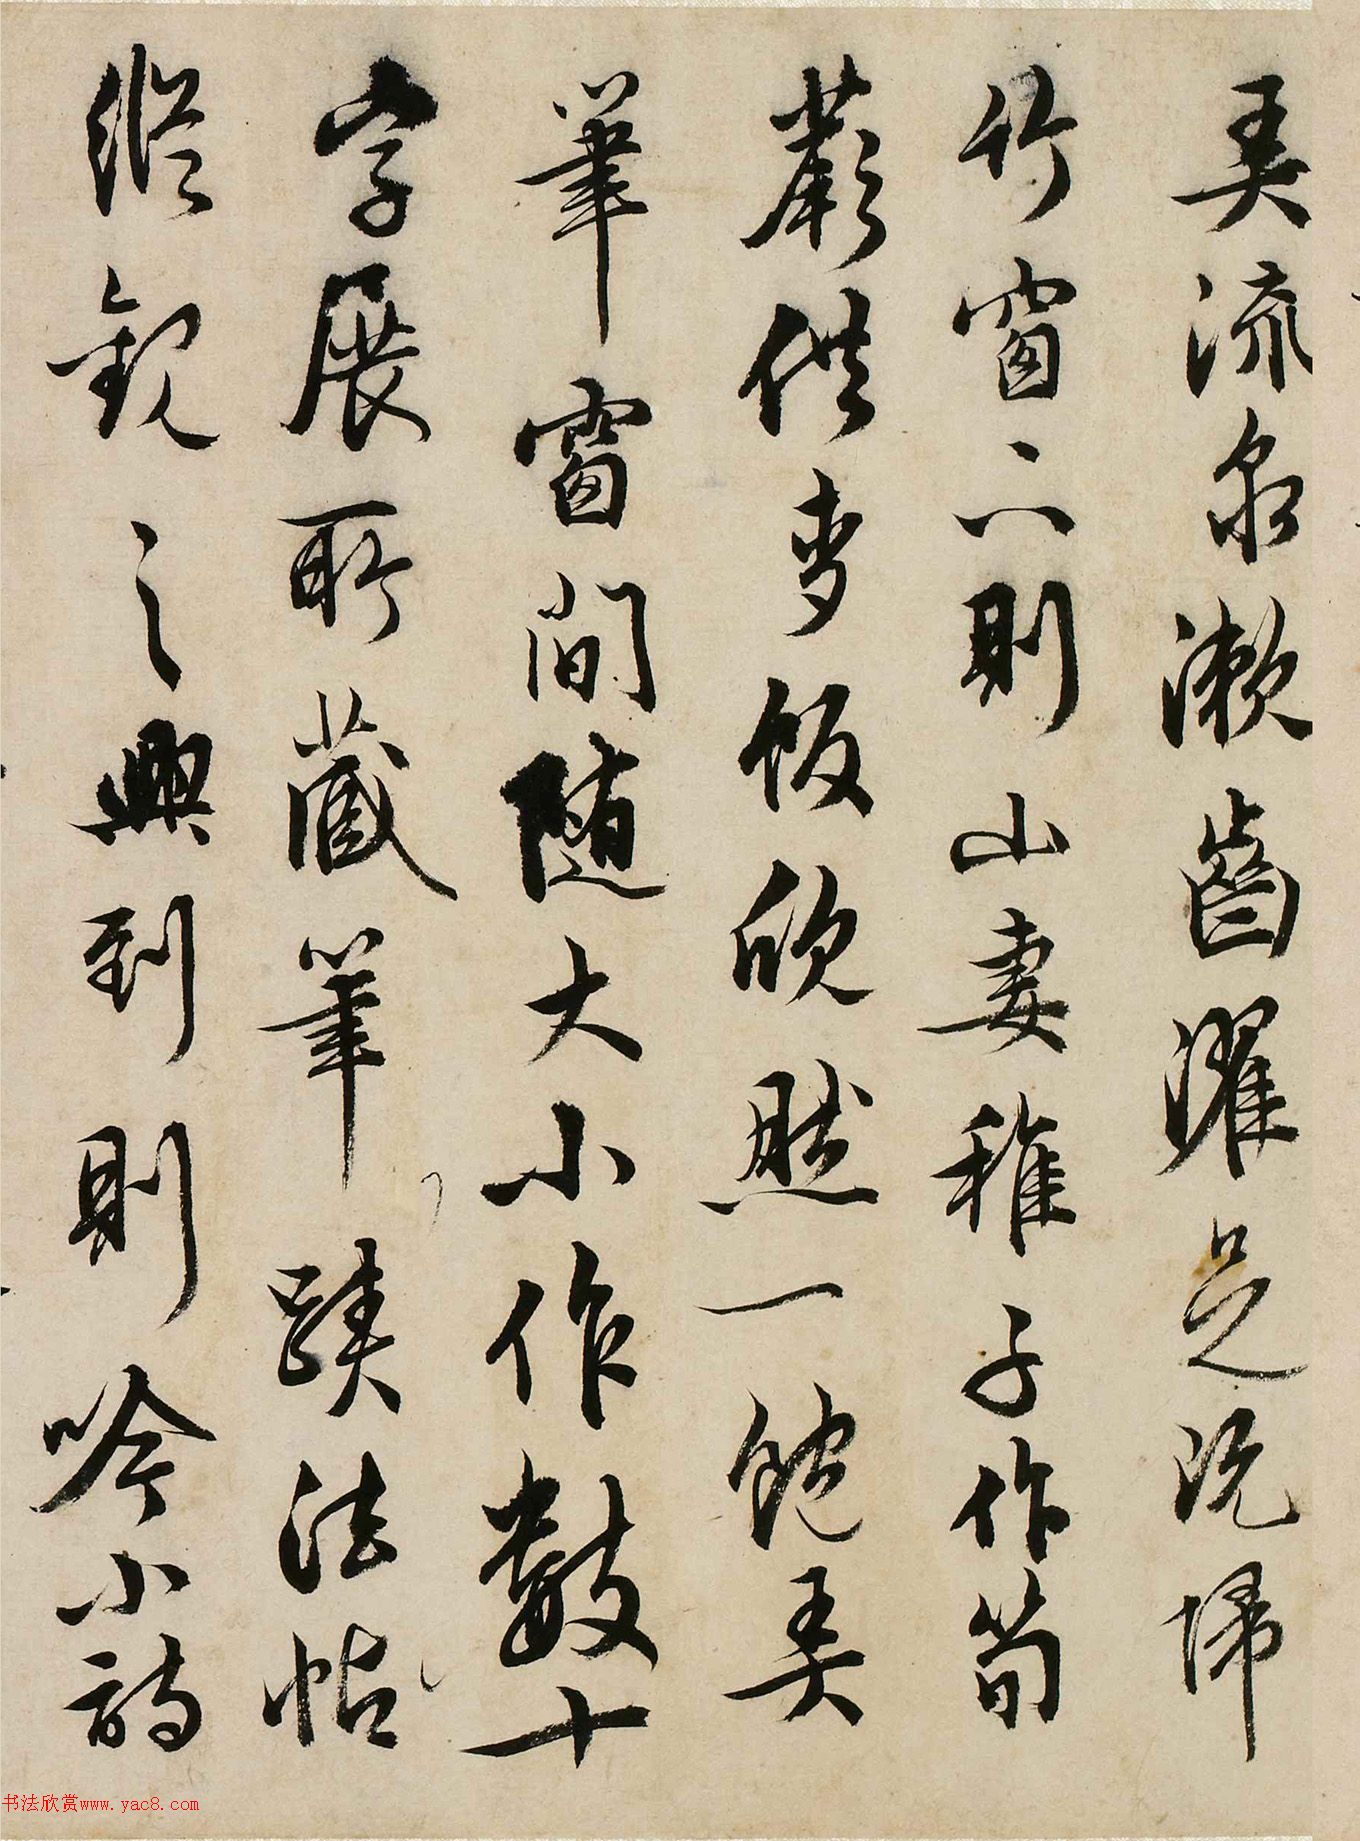 弄流泉漱齒濯足既歸
竹窗下則山妻稚子作筍
蕨供麥飯欣然一飽弄
筆窗間隨大小作數十
字展所藏筆蹟法帖
縱觀之興到則吟小詩
书法欣赏www.yac8.com